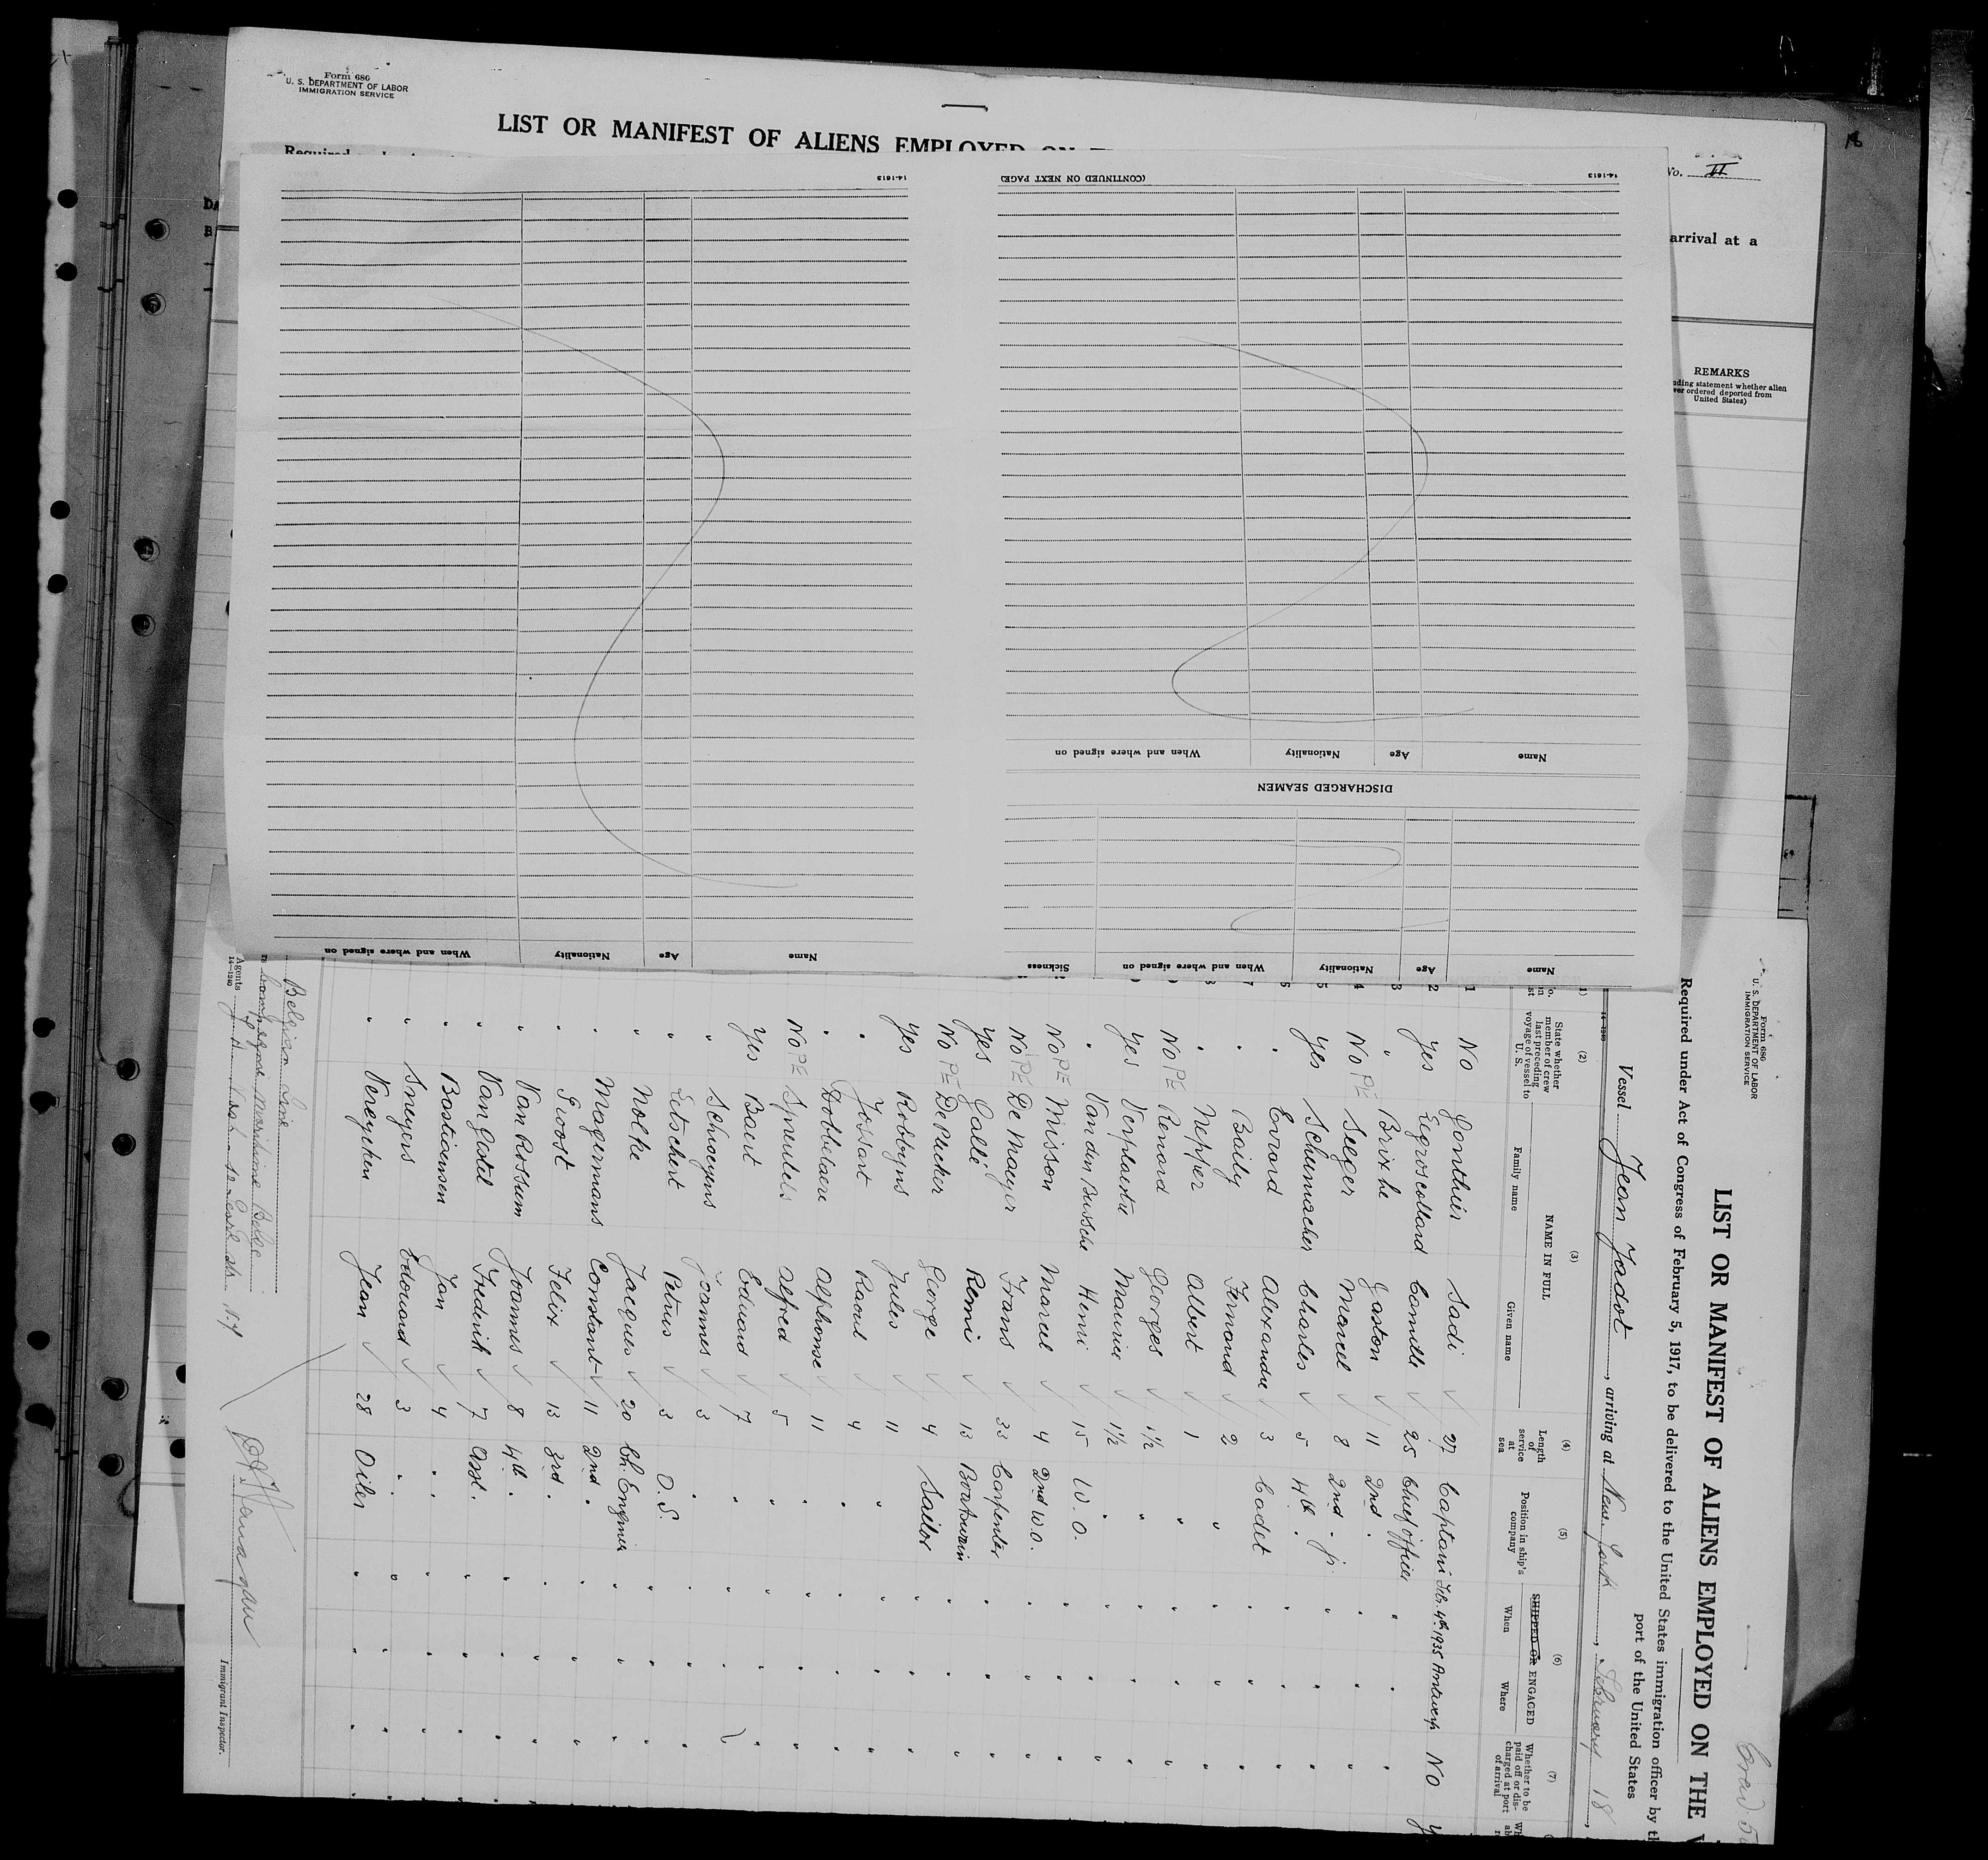 Form 680
U. S. DEPARTMENT OF LABOR
IMMIGRATION SERVICE
LIST OR MANIFEST OF ALIENS EMPLOYED ON
Required
No. II
18
arrival at a
REMARKS
ding statement whether alien
ver ordered deported from
United States)
14-1613
(CONTINUED ON NEXT PAGE)
14-1613
Name Age Nationality When and where signed on
DISCHARGED SEAMEN
Name Age Nationality When and where signed on Sickness
Name Age Nationality When and where signed on
Form 680
U. S. DEPARTMENT OF LABOR
IMMIGRATION SERVICE
LIST OR MANIFEST OF ALIENS EMPLOYED ON THE V
Required under Act of Congress of February 5, 1917, to be delivered to the United States immigration officer by th
port of the United States
Vessel Jean Jadot, arriving at New York, February 18,
(2) (3) (4) (5) (6) (7)
State whether member of crew last preceding voyage of vessel to U. S.
NAME IN FULL
Family name Given name
Length of service at sea
Position in ship's company
SHIPPED OR ENGACED
When Where
Whether to be paid off or discharged at port of arrival
1 No Gonthier Sadi 27 Captain Feb. 4th 1935 Antwerp No
2 Yes Legros collard Camille 25 Chief officer " " "
3 " Brixhe Gaston 11 2nd " " " "
4 No PE Seeger Marcel 8 2nd " jr " " "
5 Yes Schumacher Charles 5 4th " " " "
6 " Evrard Alexandre 3 Cadet " " "
7 " Baily Fernand 2 " " " "
" Nepper Albert 1 " " " "
No PE Renard Georges 1½ " " " "
Yes Verplaetse Maurice 1½ " " " "
" Van den Bussche Henri 15 W. O. " " "
No PE Misson Marcel 4 2nd W.O. " " "
No PE De Maeyer Frans 33 Carpenter " " "
Yes Gallé Remi 13 Boatswain " " "
No PE De Pucker George 4 Sailor " " "
Yes Robbyns Jules 11 " " " "
" Jossart Raoul 4 " " " "
" Dobbelaere Alphonse 11 " " " "
No PE Spruitels Alfred 5 " " " "
Yes Baert Eduard 7 " " " "
" Schoeyens Joannes 3 " " " "
" Petschert Petrus 3 O. S. " " "
" Nolke Jacques 20 Ch. Engineer " " "
" Magermans Constant 11 2nd " " " "
" Proost Felix 13 3rd " " " "
" Van Rossum Joannes 8 4th " " " "
" Van Gotel Frederik 7 Asst. " " "
" Bastiaensen Jan 4 " " " "
" Smeyers Edouard 3 " " " "
" Vereycken Jean 28 Oiler " " "
Belgian Line
Compagnie Maritime Belge
Agents
14-1240
N.Y
Immigrant Inspector.